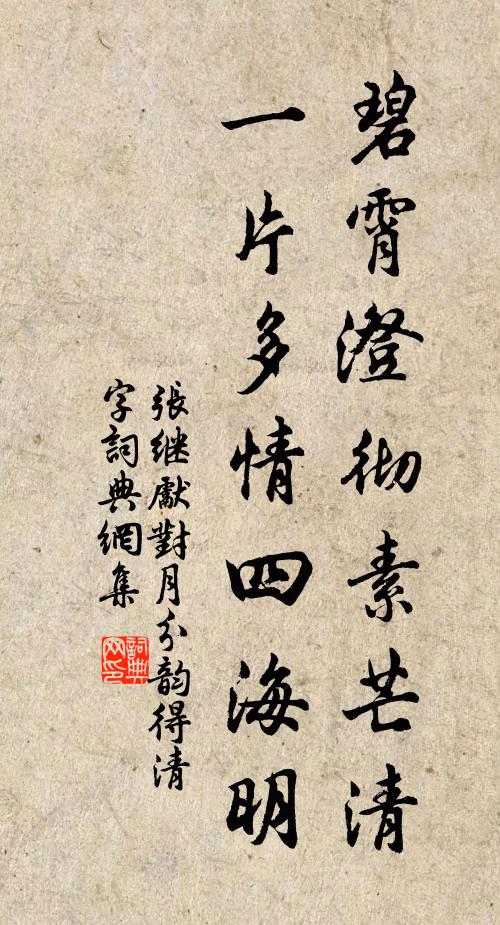 碧霄澄彻素芒清
一片多情四海明
張继獻對月分韵得清
字詞典網集
詞典網印